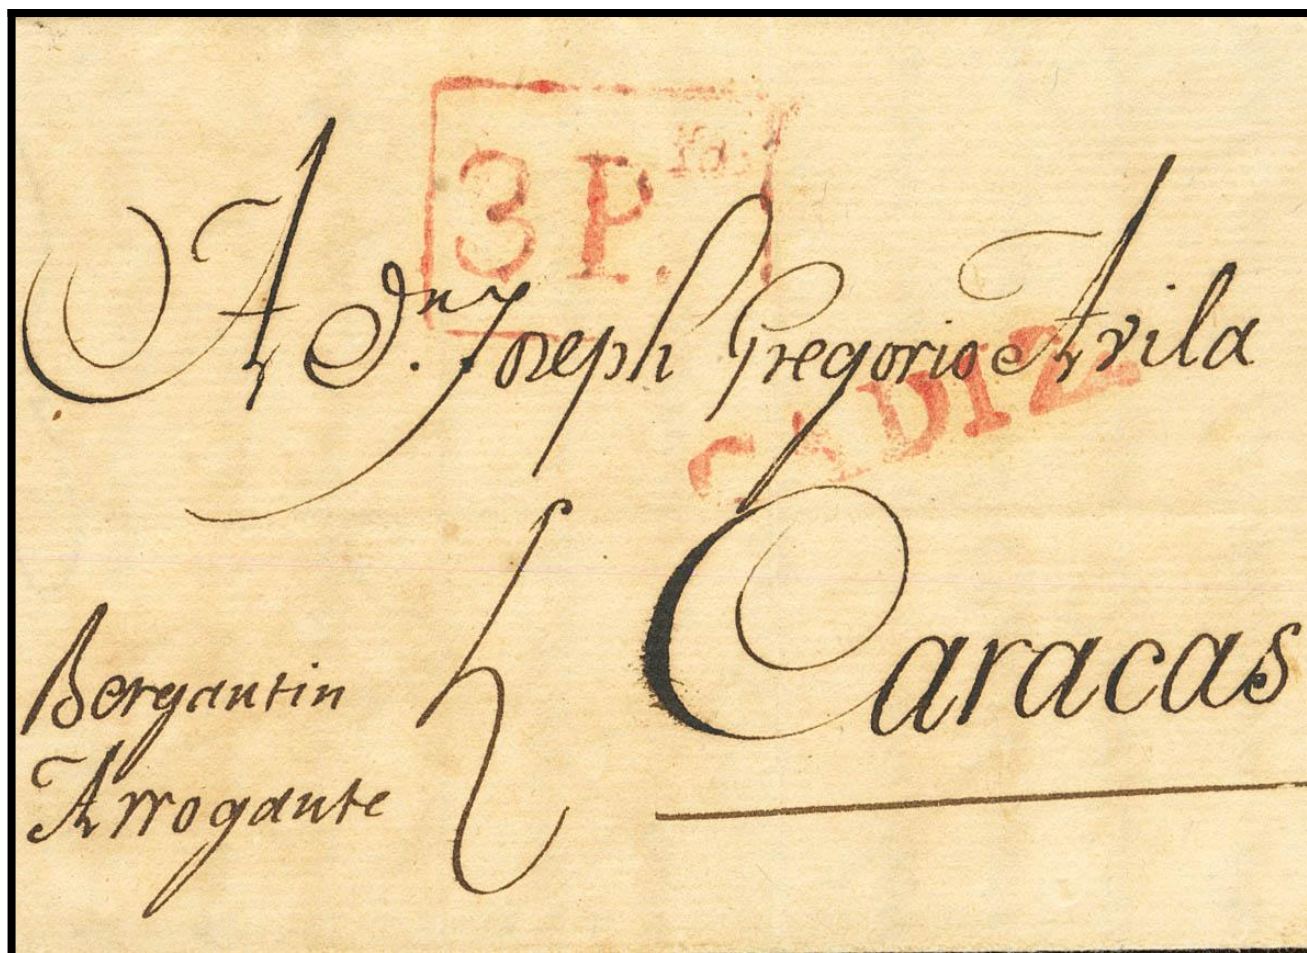 3 P.
A Dn. Joseph Gregorio Avila
CADIZ
Caracas
Bergantin
Arrogante